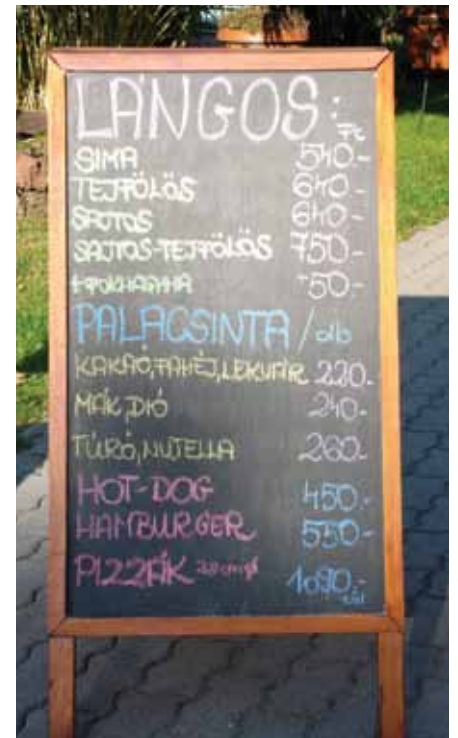 LÁNGOS: Ft
SIMA 540.-
TEJFÖLÖS 640.-
SAJTOS 640.-
SAJTOS-TEJFÖLÖS 750-
+FOKHAGYMA +50.-
PALACSINTA /db
KAKAÓ, FAHÉJ, LEKVÁR 220.-
MÁK, DIÓ 240.-
TÚRÓ, NUTELLA 260.-
HOT-DOG 450.-
HAMBURGER 550-
PIZZÁK 1090.-